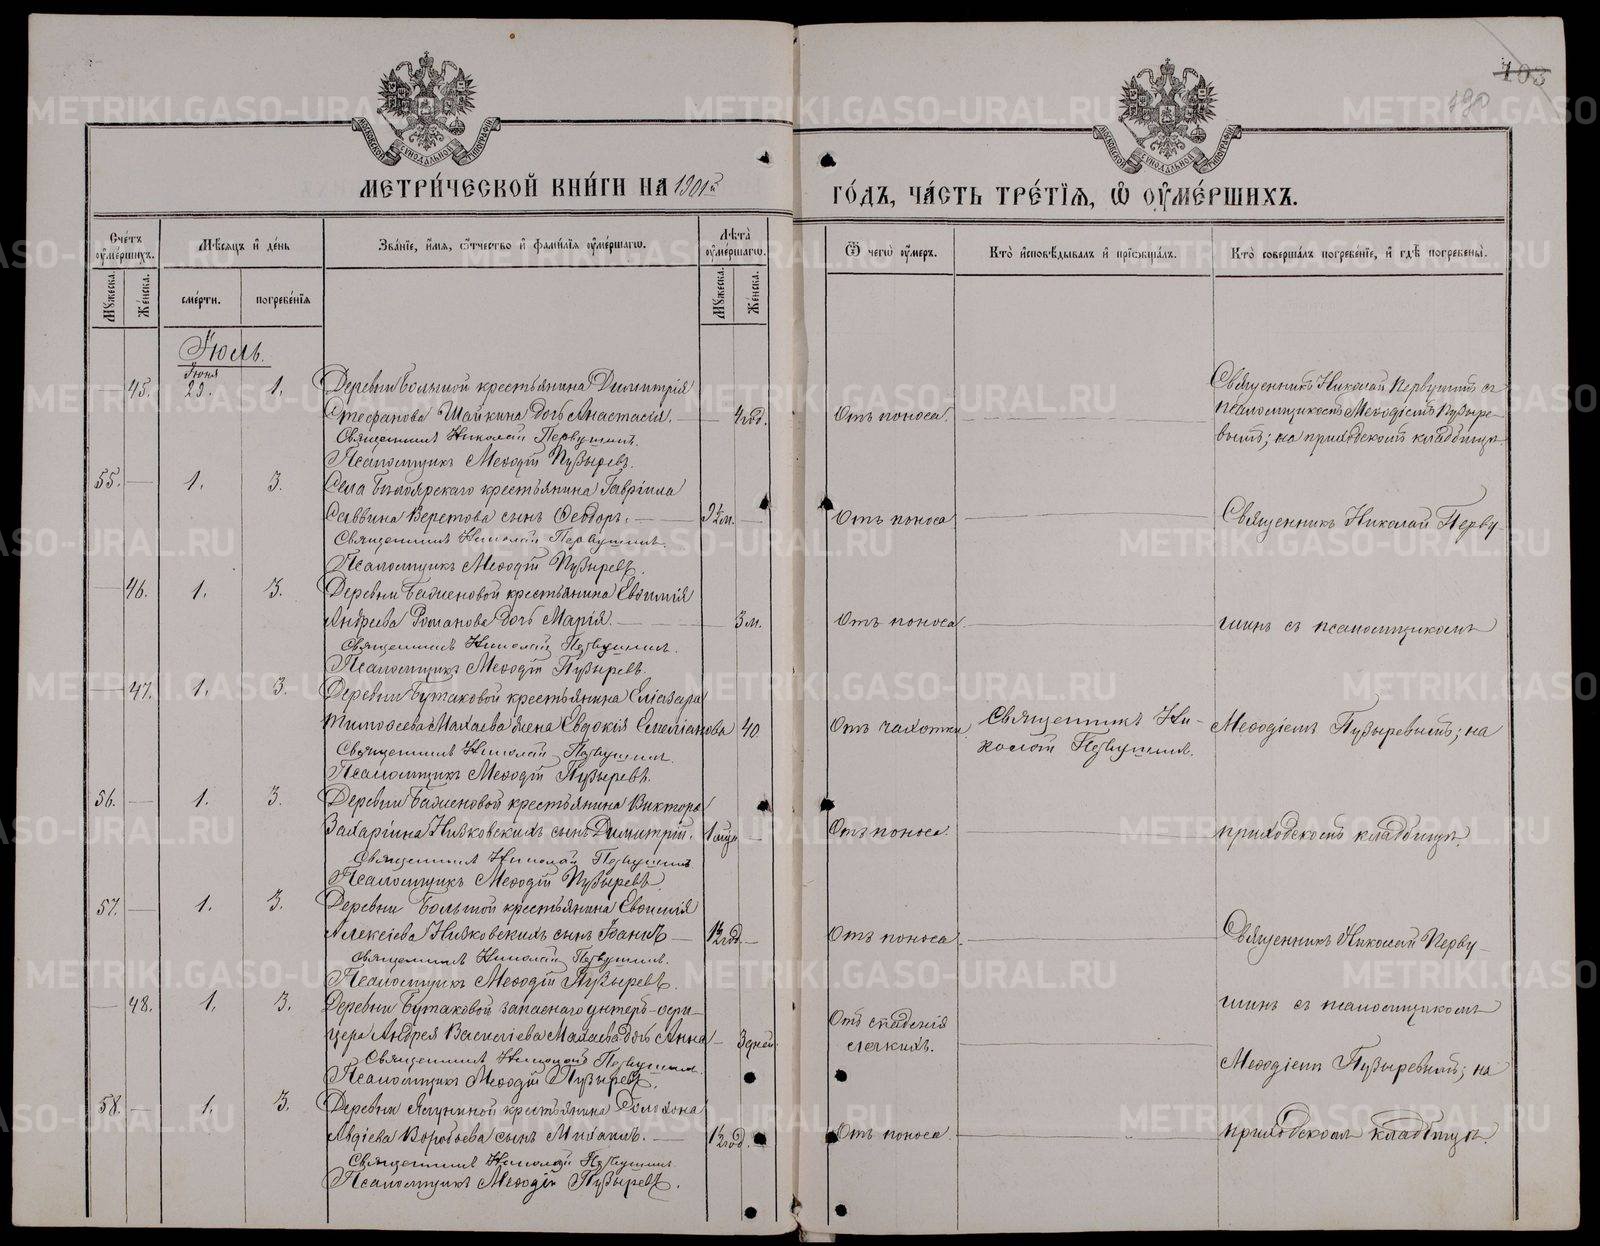 103
190
МОСКОВСКОЙ СѴНОДАЛЬНОЙ ТИПОГРАФІИ
МОСКОВСКОЙ СѴНОДАЛЬНОЙ ТИПОГРАФІИ
МЕТРИ́ЧЕСКОЙ КНИ́ГИ НА 1901й
ГО́ДЪ, ЧА́СТЬ ТРЕ́ТІѦ, Ѽ ОУ҆МЕ́РШИХЪ.
Счетъ оумершихъ.
Мужеска.
Женска.
Мѣсяцъ и день
смерти.
погребенія
Званіе, имя, отчество и фамилія оумершаго.
Лѣта оумершаго.
Мужеска.
Женска.
Ѿ чего оумеръ.
Кто исповѣдывалъ и пріобщалъ.
Кто совершалъ погребеніе, и гдѣ погребены.
Іюль.
Іюня
45. 29. 1. Деревни Большой крестьянина Димитрія
Стефанова Шайкина дочь Анастасія. 4 год. Отъ поноса. Священникъ Николай Первушинъ съ
псаломщикомъ Меѳодіемъ Пузыре-
вымъ; на приходскомъ кладбищѣ.
Священникъ Николай Первушинъ.
Псаломщикъ Меѳодій Пузыревъ.
55. 1. 3. Села Бѣлоярскаго крестьянина Гавріила
Саввина Веретова сынъ Ѳеодоръ. 9½ м. Отъ поноса Священникъ Николай Перву-
Священникъ Николай Первушинъ.
Псаломщикъ Меѳодій Пузыревъ.
46. 1. 3. Деревни Баженовой крестьянина Евѳимія
Андреева Романова дочь Марія. 3 м. Отъ поноса шинъ съ псаломщикомъ
Священникъ Николай Первушинъ.
Псаломщикъ Меѳодій Пузыревъ.
47. 1. 3. Деревни Бутаковой крестьянина Еліазара
Тимоѳеева Махаева жена Евдокія Емеліанова 40 Отъ чахотки. Священникъ Ни-
колай Первушинъ. Меѳодіемъ Пузыревымъ; на
Священникъ Николай Первушинъ.
Псаломщикъ Меѳодій Пузыревъ.
56. 1. 3. Деревни Баженовой крестьянина Виктора
Захаріина Низковскихъ сынъ Димитрій. Отъ поноса. приходскомъ кладбищѣ.
Священникъ Николай Первушинъ
Псаломщикъ Меѳодій Пузыревъ.
57. 1. 3. Деревни Большой крестьянина Евѳимія
Алексіева Низковскихъ сынъ Іоаннъ 1½ год. Отъ поноса. Священникъ Николай Перву-
Священникъ Николай Первушинъ.
Псаломщикъ Меѳодій Пузыревъ.
48. 1. 3. Деревни Бутаковой запаснаго унтеръ-офи-
цера Андрея Василіева Махаева дочь Анна 3 дней Отъ спаденія
легкихъ. шинъ съ псаломщикомъ
Священникъ Николай Первушинъ.
Псаломщикъ Меѳодій Пузыревъ. Меѳодіемъ Пузыревымъ; на
58. 1. 3. Деревни крестьянина Соломона
Авдіева Воробьева сынъ Михаилъ. 1½ год. Отъ поноса. приходскомъ кладбищѣ.
Священникъ Николай Первушинъ.
Псаломщикъ Меѳодій Пузыревъ.
METRIKI.GASO-URAL.RU